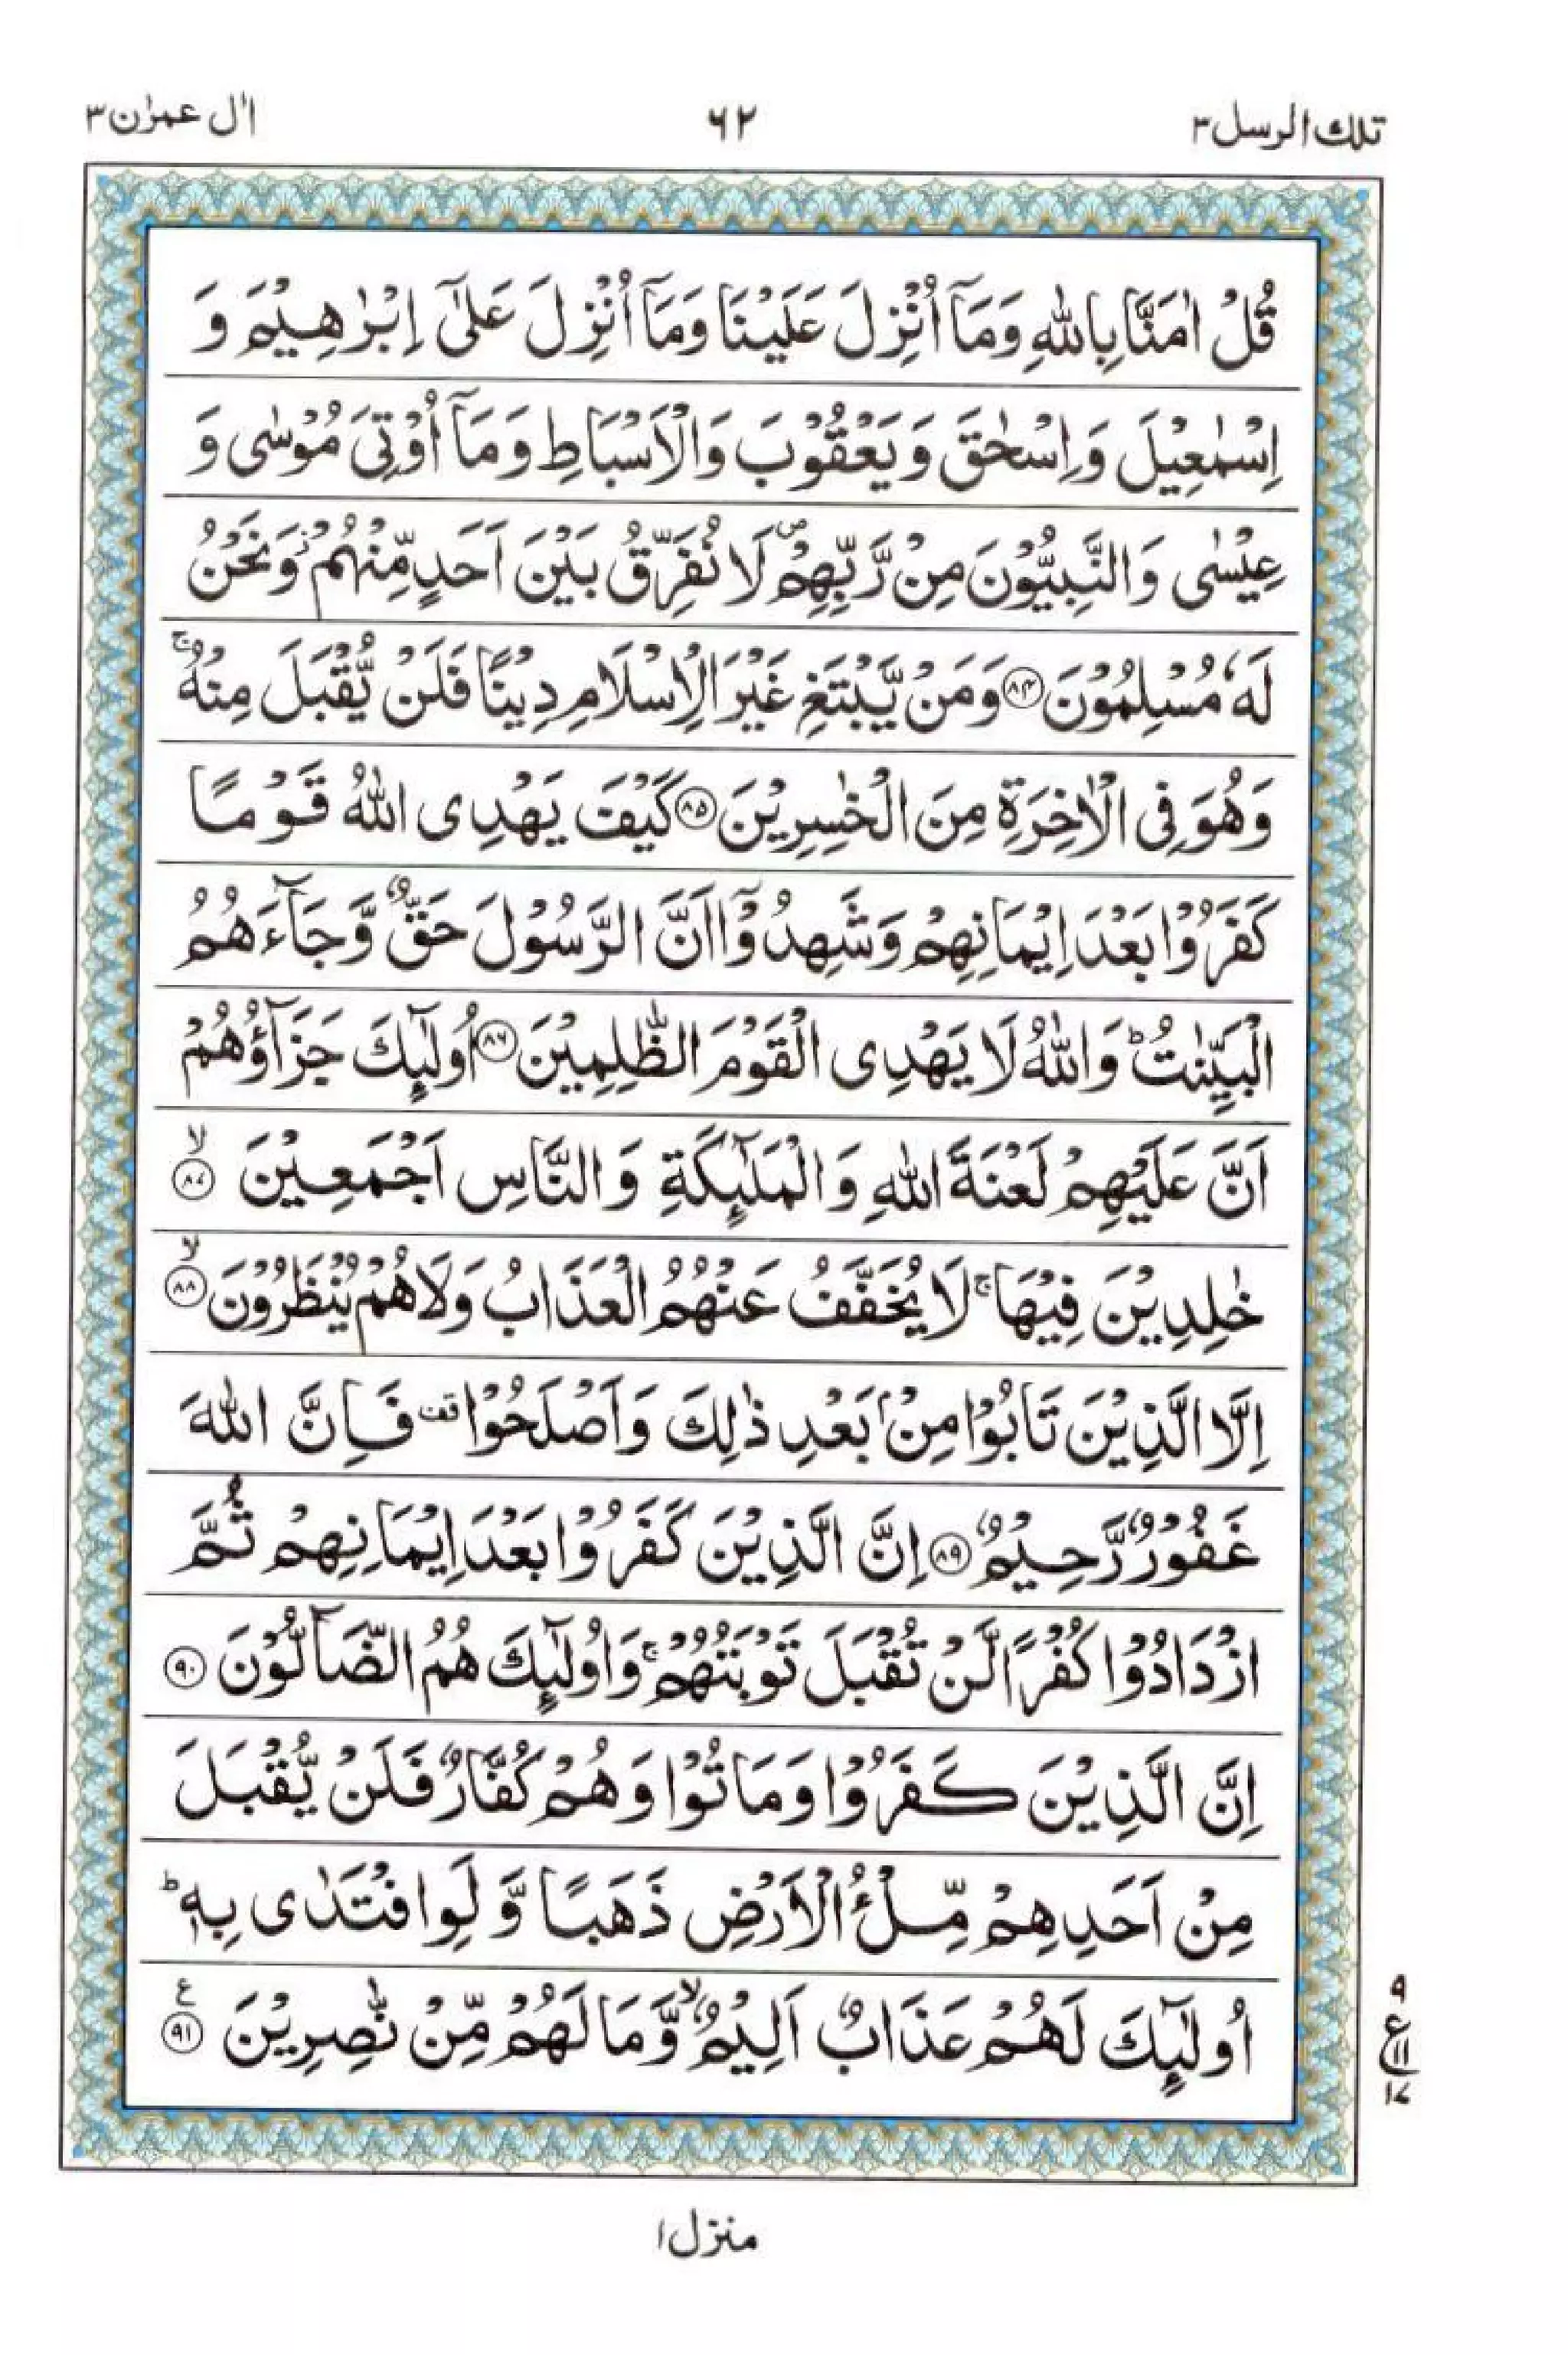 تلك الرسل ٣
٦٢
اٰل عمرٰن ٣
قُلْ اٰمَنَّا بِاللّٰهِ وَمَاۤ اُنْزِلَ عَلَيْنَا وَمَاۤ اُنْزِلَ عَلٰۤى اِبْرٰهِيْمَ وَ
اِسْمٰعِيْلَ وَاِسْحٰقَ وَيَعْقُوْبَ وَالْاَسْبَاطِ وَمَاۤ اُوْتِىَ مُوْسٰى وَ
عِيْسٰى وَالنَّبِيُّوْنَ مِنْ رَّبِّهِمْ ۖ لَا نُفَرِّقُ بَيْنَ اَحَدٍ مِّنْهُمْ ز وَنَحْنُ
لَهٗ مُسْلِمُوْنَ ﴿٨٤﴾ وَمَنْ يَّبْتَغِ غَيْرَ الْاِسْلَامِ دِيْنًا فَلَنْ يُّقْبَلَ مِنْهُ ۚ
وَهُوَ فِى الْاٰخِرَةِ مِنَ الْخٰسِرِيْنَ ﴿٨٥﴾ كَيْفَ يَهْدِى اللّٰهُ قَوْمًا
كَفَرُوْا بَعْدَ اِيْمَانِهِمْ وَشَهِدُوْۤا اَنَّ الرَّسُوْلَ حَقٌّ وَّجَآءَهُمُ
الْبَيِّنٰتُ ؕ وَاللّٰهُ لَا يَهْدِى الْقَوْمَ الظّٰلِمِيْنَ ﴿٨٦﴾ اُولٰٓئِكَ جَزَآؤُهُمْ
اَنَّ عَلَيْهِمْ لَعْنَةَ اللّٰهِ وَالْمَلٰٓئِكَةِ وَالنَّاسِ اَجْمَعِيْنَ ۙ ﴿٨٧﴾
خٰلِدِيْنَ فِيْهَا ۚ لَا يُخَفَّفُ عَنْهُمُ الْعَذَابُ وَلَا هُمْ يُنْظَرُوْنَ ۙ ﴿٨٨﴾
اِلَّا الَّذِيْنَ تَابُوْا مِنْۢ بَعْدِ ذٰلِكَ وَاَصْلَحُوْا قف فَاِنَّ اللّٰهَ
غَفُوْرٌ رَّحِيْمٌ ﴿٨٩﴾ اِنَّ الَّذِيْنَ كَفَرُوْا بَعْدَ اِيْمَانِهِمْ ثُمَّ
ازْدَادُوْا كُفْرًا لَّنْ تُقْبَلَ تَوْبَتُهُمْ ۚ وَاُولٰٓئِكَ هُمُ الضَّآلُّوْنَ ﴿٩٠﴾
اِنَّ الَّذِيْنَ كَفَرُوْا وَمَاتُوْا وَهُمْ كُفَّارٌ فَلَنْ يُّقْبَلَ
مِنْ اَحَدِهِمْ مِّلْءُ الْاَرْضِ ذَهَبًا وَّلَوِ افْتَدٰى بِهٖ ؕ
اُولٰٓئِكَ لَهُمْ عَذَابٌ اَلِيْمٌ ۙ وَّمَا لَهُمْ مِّنْ نّٰصِرِيْنَ ع ﴿٩١﴾
٩
ع
١١
١٧
منزل ١